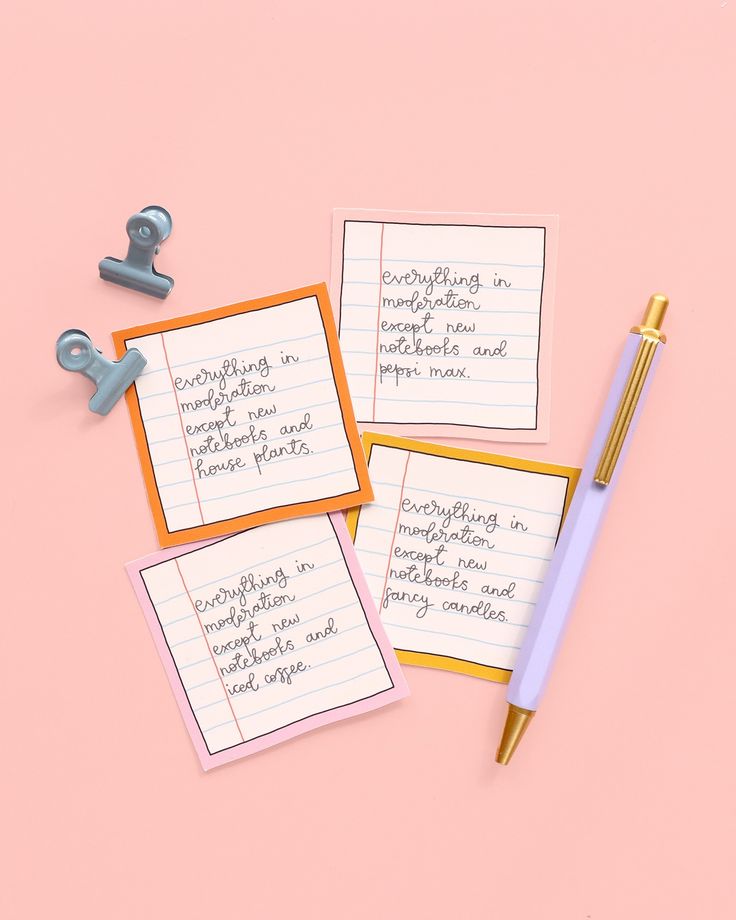 everything in
moderation
except new
notebooks and
pepsi max.
everything in
moderation
except new
notebooks and
house plants.
everything in
moderation
except new
notebooks and
fancy candles.
everything in
moderation
except new
notebooks and
iced coffee.